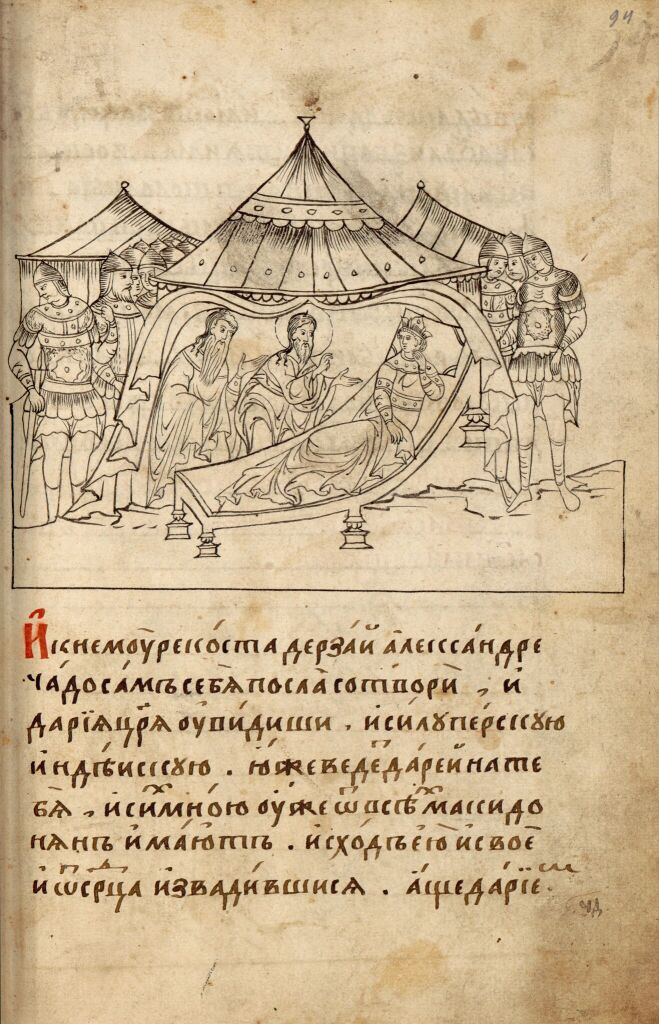 94
И кнемоу рекоста дерзай алеѯандре
чадо самъ себя посла сотвори , и
дарїя цр҃я оувидиши . и силу перскую
индѣискую . юже веде дарей на те
бя , и симною оуже ѿ всѣ макидо
нянъ имаютъ . исходъ ею и свое
и ѿ срца извадившися . аще дарїе
чд